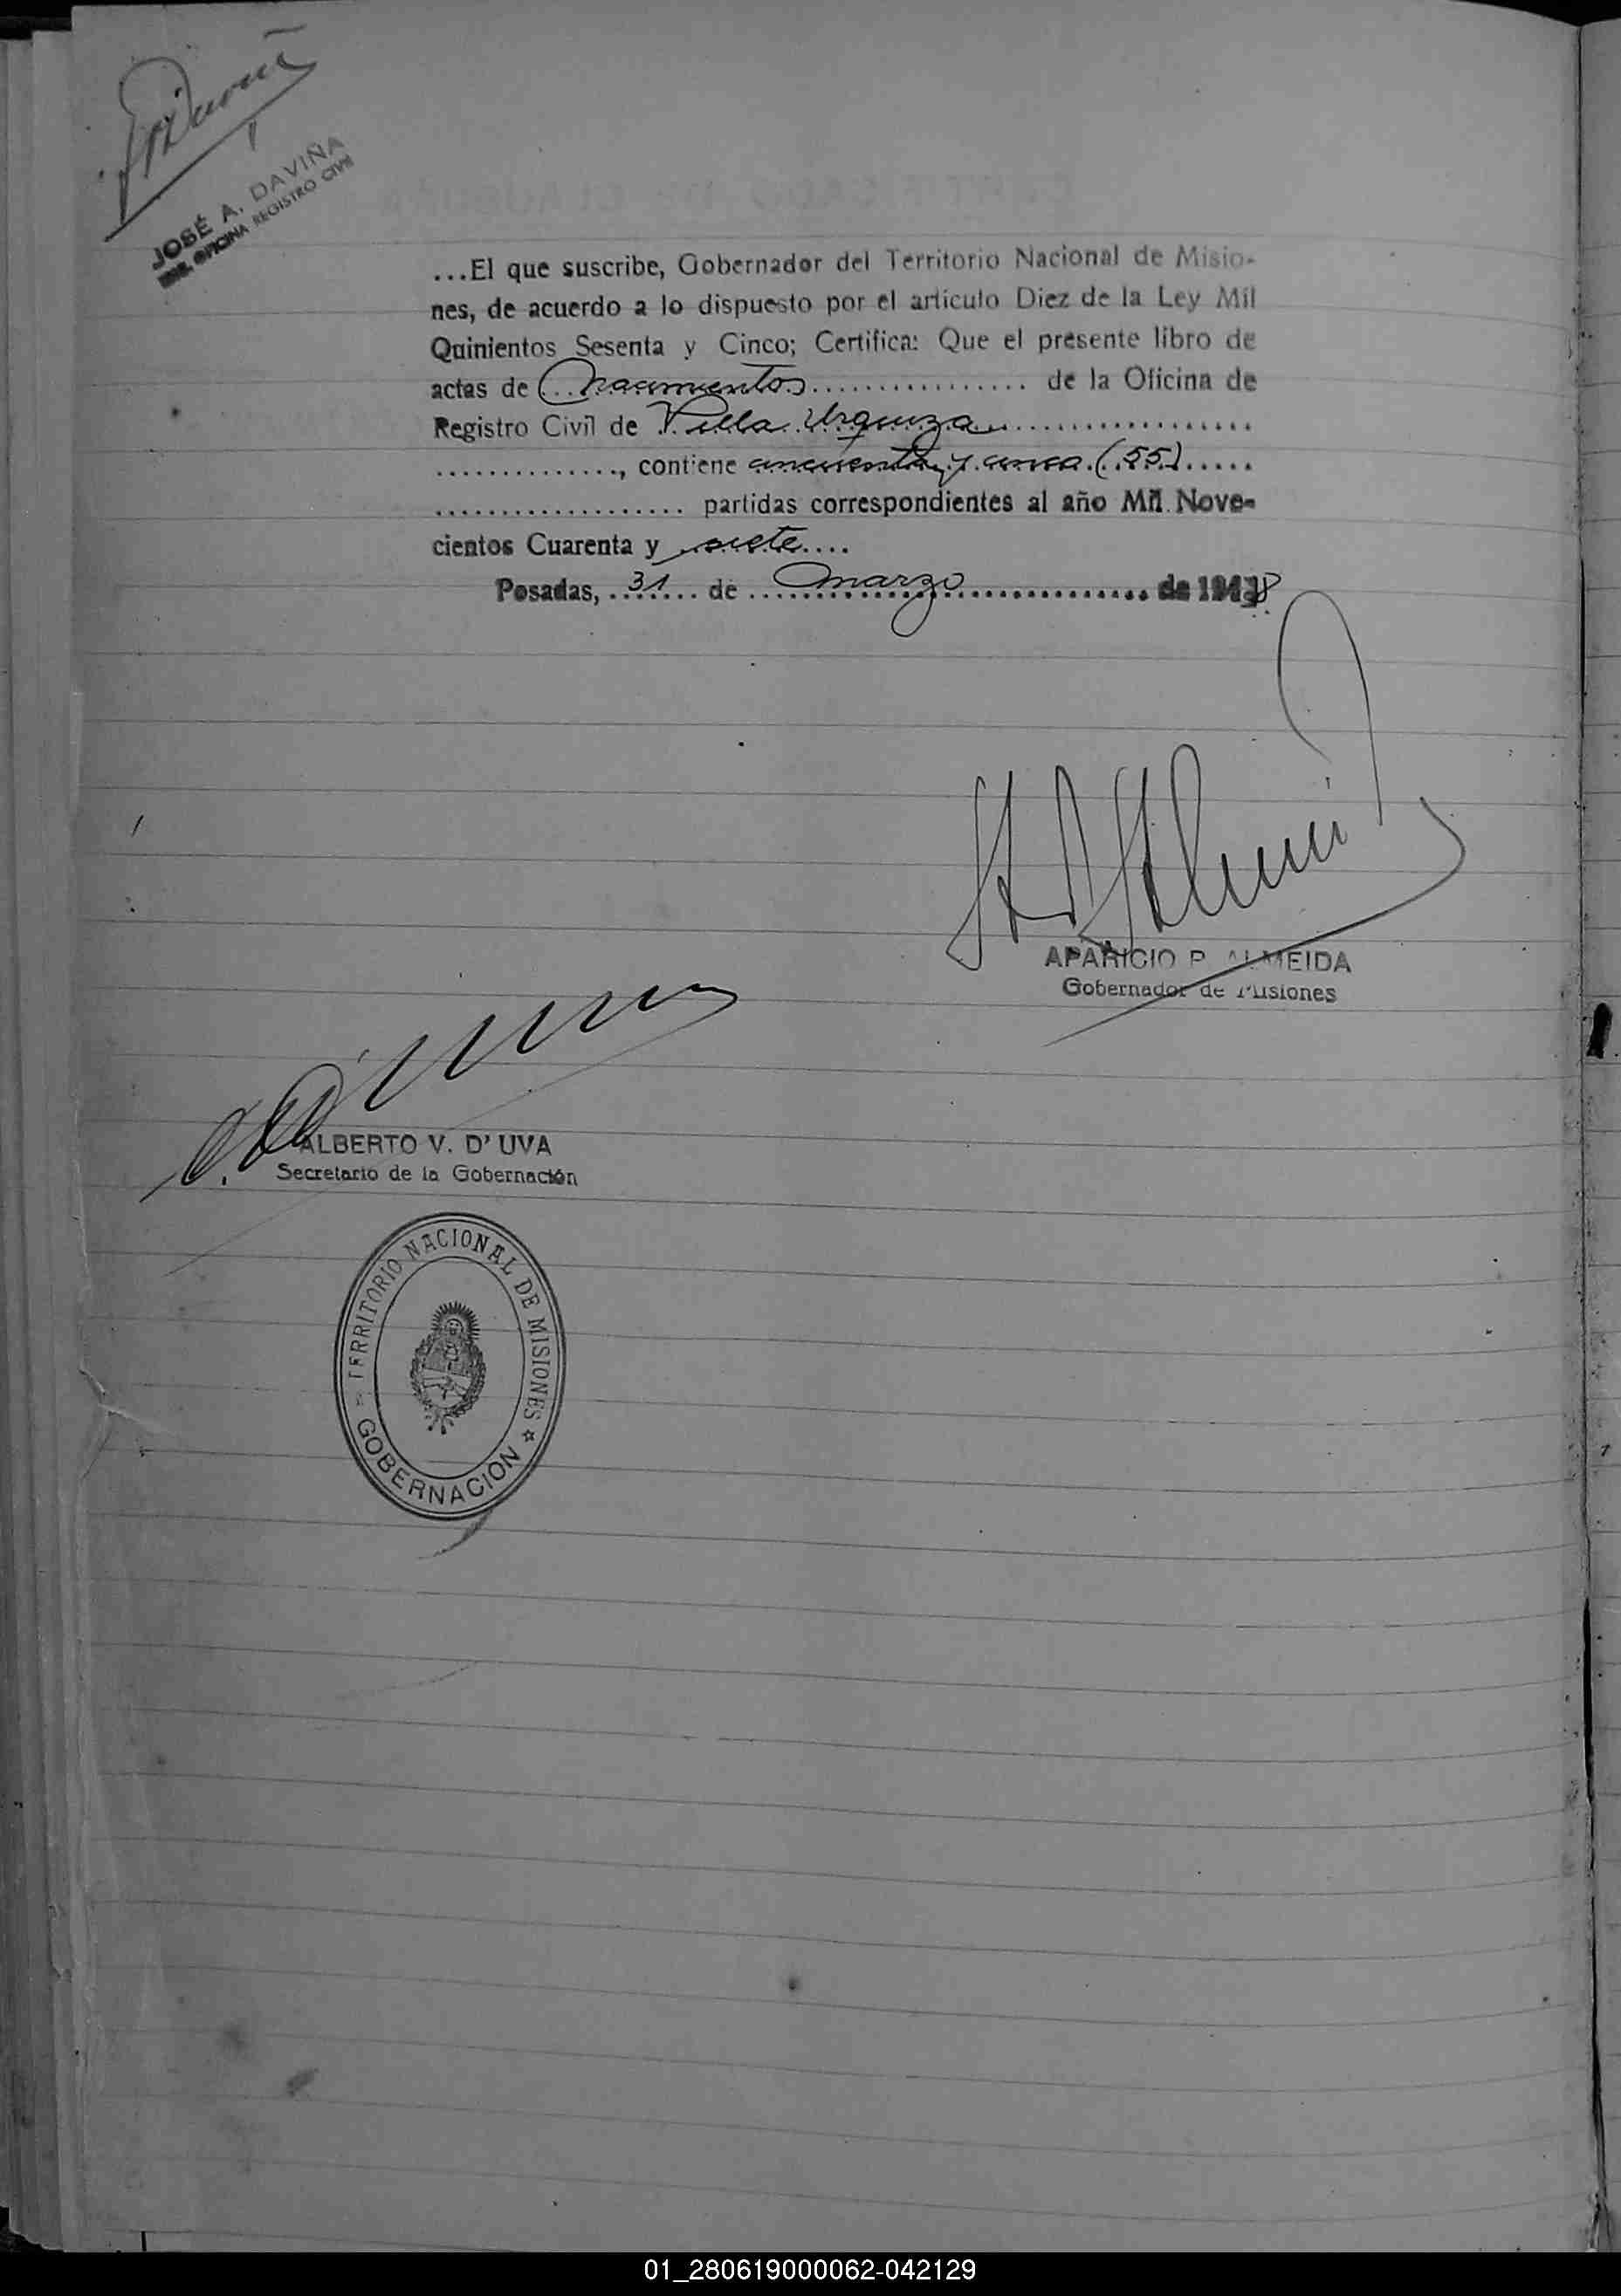 JOSÉ A. DAVIÑA
OFICINA REGISTRO CIVIL
...El que suscribe, Gobernador del Territorio Nacional de Misio-
nes, de acuerdo a lo dispuesto por el artículo Diez de la Ley Mil
Quinientos Sesenta y Cinco; Certifica: Que el presente libro de
actas de Nacimientos................ de la Oficina de
Registro Civil de Villa Urquiza..................
.............., contiene cincuenta y cinco (55).....
................... partidas correspondientes al año Mil Nove-
cientos Cuarenta y siete....
Posadas, 31 de marzo de 1948
APARICIO P. ALMEIDA
Gobernador de Misiones
ALBERTO V. D'UVA
Secretario de la Gobernación
TERRITORIO NACIONAL DE MISIONES
GOBERNACION
01_280619000062-042129